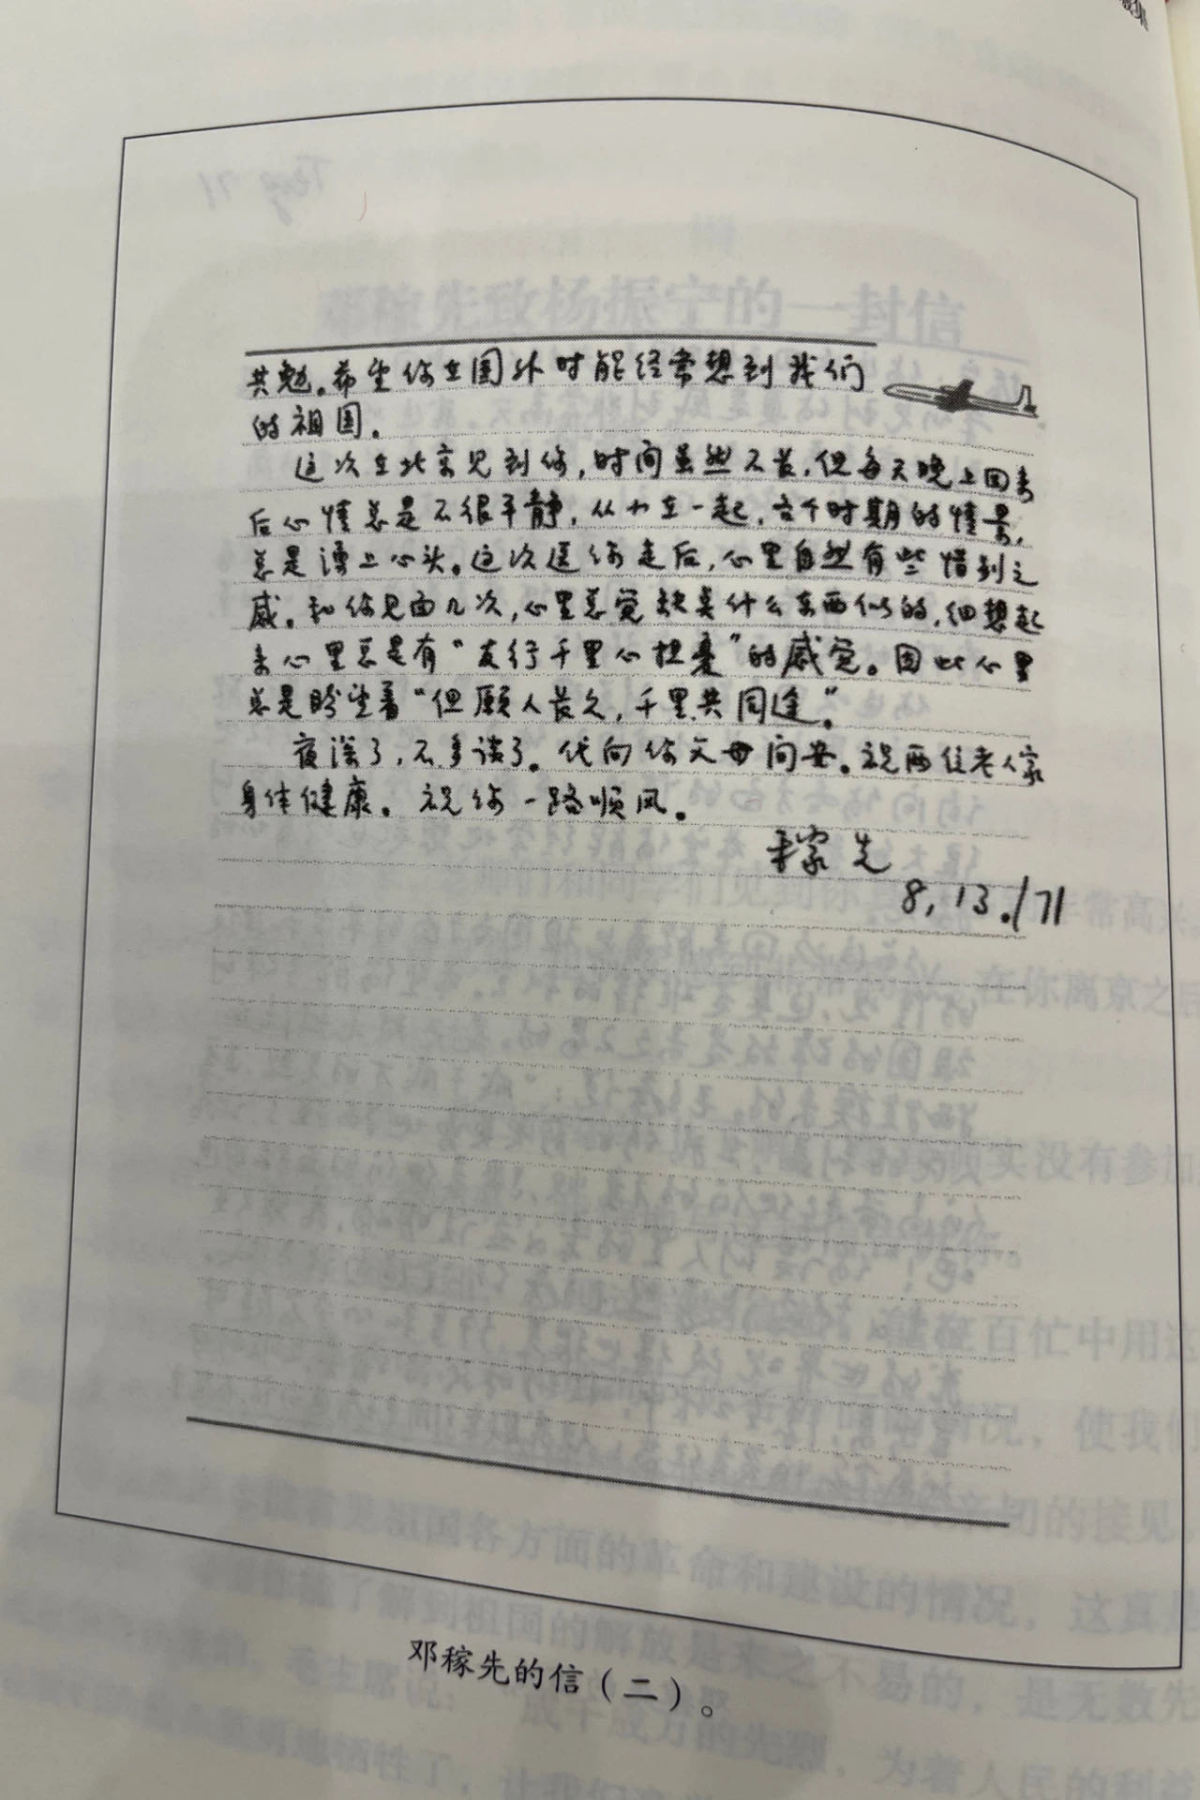 共勉。希望你在国外时能经常想到我们
的祖国。
这次在北京见到你，时间虽然不长，但每天晚上回来
后心情总是不很平静，从小在一起，各个时期的情景，
总是涌上心头。这次送你走后，心里自然有些惜别之
感。和你见面几次，心里总觉缺莫什么东西似的，细想起
来心里总是有“友行千里心担忧”的感觉。因此心里
总是盼望着“但愿人长久，千里共同途。”
夜深了，不多谈了。代向你父母问安。祝两位老人家
身体健康。祝你一路顺风。
稼先
8，13./71
邓稼先的信（二）。